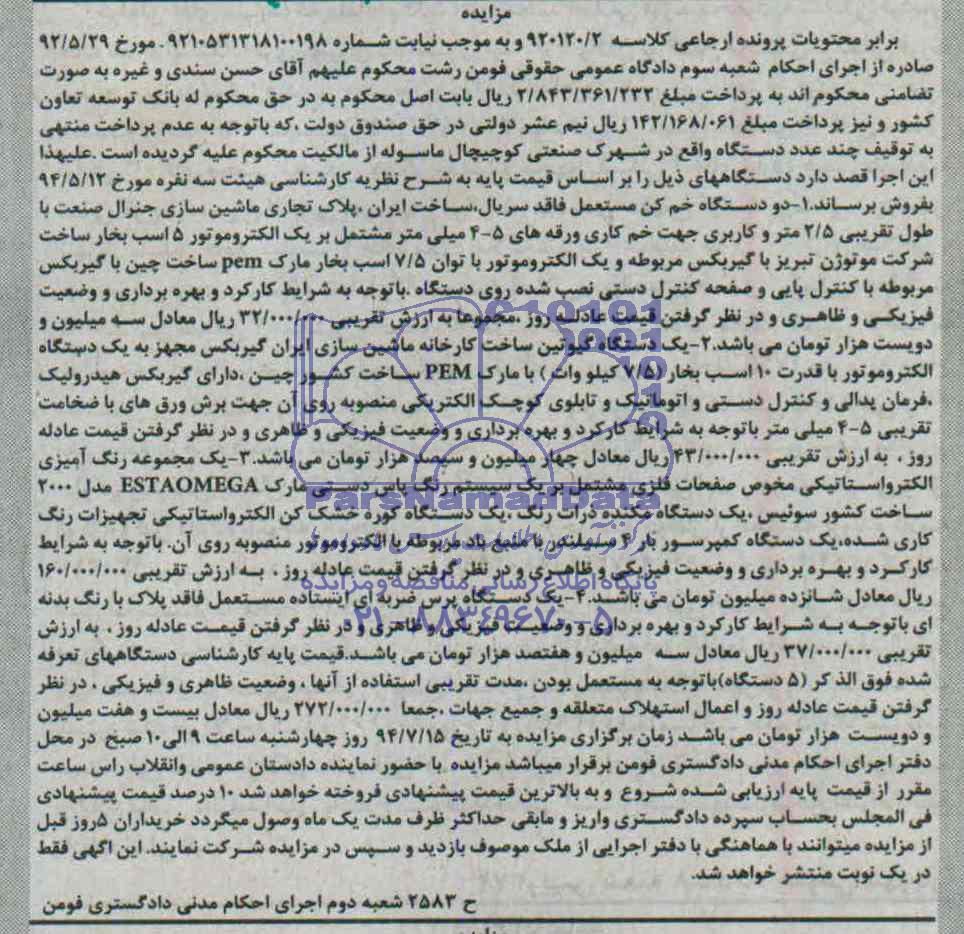 مزایده
برابر محتویات پرونده ارجاعی کلاسه ۹۲۰۱۲۰/۲ و به موجب نیابت شماره ۹۲۱۰۵۳۱۳۱۸۱۰۰۱۹۸ . مورخ ۹۲/۵/۲۹
صادره از اجرای احکام شعبه سوم دادگاه عمومی حقوقی فومن رشت محکوم علیهم آقای حسن سندی و غیره به صورت
تضامنی محکوم اند به پرداخت مبلغ ۲/۸۴۳/۳۶۱/۲۳۲ ریال بابت اصل محکوم به در حق محکوم له بانک توسعه تعاون
کشور و نیز پرداخت مبلغ ۱۴۲/۱۶۸/۰۶۱ ریال نیم عشر دولتی در حق صندوق دولت ،که باتوجه به عدم پرداخت منتهی
به توقیف چند عدد دستگاه واقع در شهرک صنعتی کوچیچال ماسوله از مالکیت محکوم علیه گردیده است .علیهذا
این اجرا قصد دارد دستگاههای ذیل را بر اساس قیمت پایه به شرح نظریه کارشناسی هیئت سه نفره مورخ ۹۴/۵/۱۲
بفروش برساند.۱-دو دستگاه خم کن مستعمل فاقد سریال،ساخت ایران ،پلاک تجاری ماشین سازی جنرال صنعت با
طول تقریبی ۲/۵ متر و کاربری جهت خم کاری ورقه های ۵-۴ میلی متر مشتمل بر یک الکتروموتور ۵ اسب بخار ساخت
شرکت موتوژن تبریز با گیربکس مربوطه و یک الکتروموتور با توان ۷/۵ اسب بخار مارک pem ساخت چین با گیربکس
مربوطه با کنترل پایی و صفحه کنترل دستی نصب شده روی دستگاه .باتوجه به شرایط کارکرد و بهره برداری و وضعیت
فیزیکی و ظاهری و در نظر گرفتن قیمت عادله روز ،مجموعا به ارزش تقریبی ۳۲/۰۰۰/۰۰۰ ریال معادل سه میلیون و
دویست هزار تومان می باشد.۲-یک دستگاه گیوتین ساخت کارخانه ماشین سازی ایران گیربکس مجهز به یک دستگاه
الکتروموتور با قدرت ۱۰ اسب بخار (۷/۵ کیلو وات ) با مارک PEM ساخت کشور چین ،دارای گیربکس هیدرولیک
،فرمان پدالی و کنترل دستی و اتوماتیک و تابلوی کوچک الکتریکی منصوبه روی آن جهت برش ورق های با ضخامت
تقریبی ۵-۴ میلی متر باتوجه به شرایط کارکرد و بهره برداری و وضعیت فیزیکی و ظاهری و در نظر گرفتن قیمت عادله
روز ، به ارزش تقریبی ۴۳/۰۰۰/۰۰۰ ریال معادل چهار میلیون و سیصد هزار تومان می باشد.۳-یک مجموعه رنگ آمیزی
الکترواستاتیکی مخوص صفحات فلزی مشتمل بر یک سیستم رنگ پاس دستی مارک ESTAOMEGA مدل ۲۰۰۰
ساخت کشور سوئیس ،یک دستگاه مکنده ذرات رنگ ،یک دستگاه کوره خشک کن الکترواستاتیکی تجهیزات رنگ
کاری شده،یک دستگاه کمپرسور بار ۴ سیلندر با منبع باد مربوطه با الکتروموتور منصوبه روی آن. باتوجه به شرایط
کارکرد و بهره برداری و وضعیت فیزیکی و ظاهری و در نظر گرفتن قیمت عادله روز ، به ارزش تقریبی ۱۶۰/۰۰۰/۰۰۰
ریال معادل شانزده میلیون تومان می باشد.۴-یک دستگاه پرس ضربه ای ایستاده مستعمل فاقد پلاک با رنگ بدنه
ای باتوجه به شرایط کارکرد و بهره برداری و وضعیت فیزیکی و ظاهری و در نظر گرفتن قیمت عادله روز ، به ارزش
تقریبی ۳۷/۰۰۰/۰۰۰ ریال معادل سه میلیون و هفتصد هزار تومان می باشد.قیمت پایه کارشناسی دستگاههای تعرفه
شده فوق الذکر (۵ دستگاه)باتوجه به مستعمل بودن ،مدت تقریبی استفاده از آنها ، وضعیت ظاهری و فیزیکی ، در نظر
گرفتن قیمت عادله روز و اعمال استهلاک متعلقه و جمیع جهات .جمعا ۲۷۲/۰۰۰/۰۰۰ ریال معادل بیست و هفت میلیون
و دویست هزار تومان می باشد زمان برگزاری مزایده به تاریخ ۹۴/۷/۱۵ روز چهارشنبه ساعت ۹ الی۱۰ صبح در محل
دفتر اجرای احکام مدنی دادگستری فومن برقرار میباشد مزایده با حضور نماینده دادستان عمومی وانقلاب راس ساعت
مقرر از قیمت پایه ارزیابی شده شروع و به بالاترین قیمت پیشنهادی فروخته خواهد شد ۱۰ درصد قیمت پیشنهادی
فی المجلس بحساب سپرده دادگستری واریز و مابقی حداکثر ظرف مدت یک ماه وصول میگردد خریداران ۵روز قبل
از مزایده میتوانند با هماهنگی با دفتر اجرایی از ملک موصوف بازدید و سپس در مزایده شرکت نمایند. این اگهی فقط
در یک نوبت منتشر خواهد شد.
ح ۲۵۸۳ شعبه دوم اجرای احکام مدنی دادگستری فومن
ParsNamadData
پایگاه اطلاع رسانی مناقصه و مزایده
۰۲۱-۸۸۳۴۹۶۷۰-۵